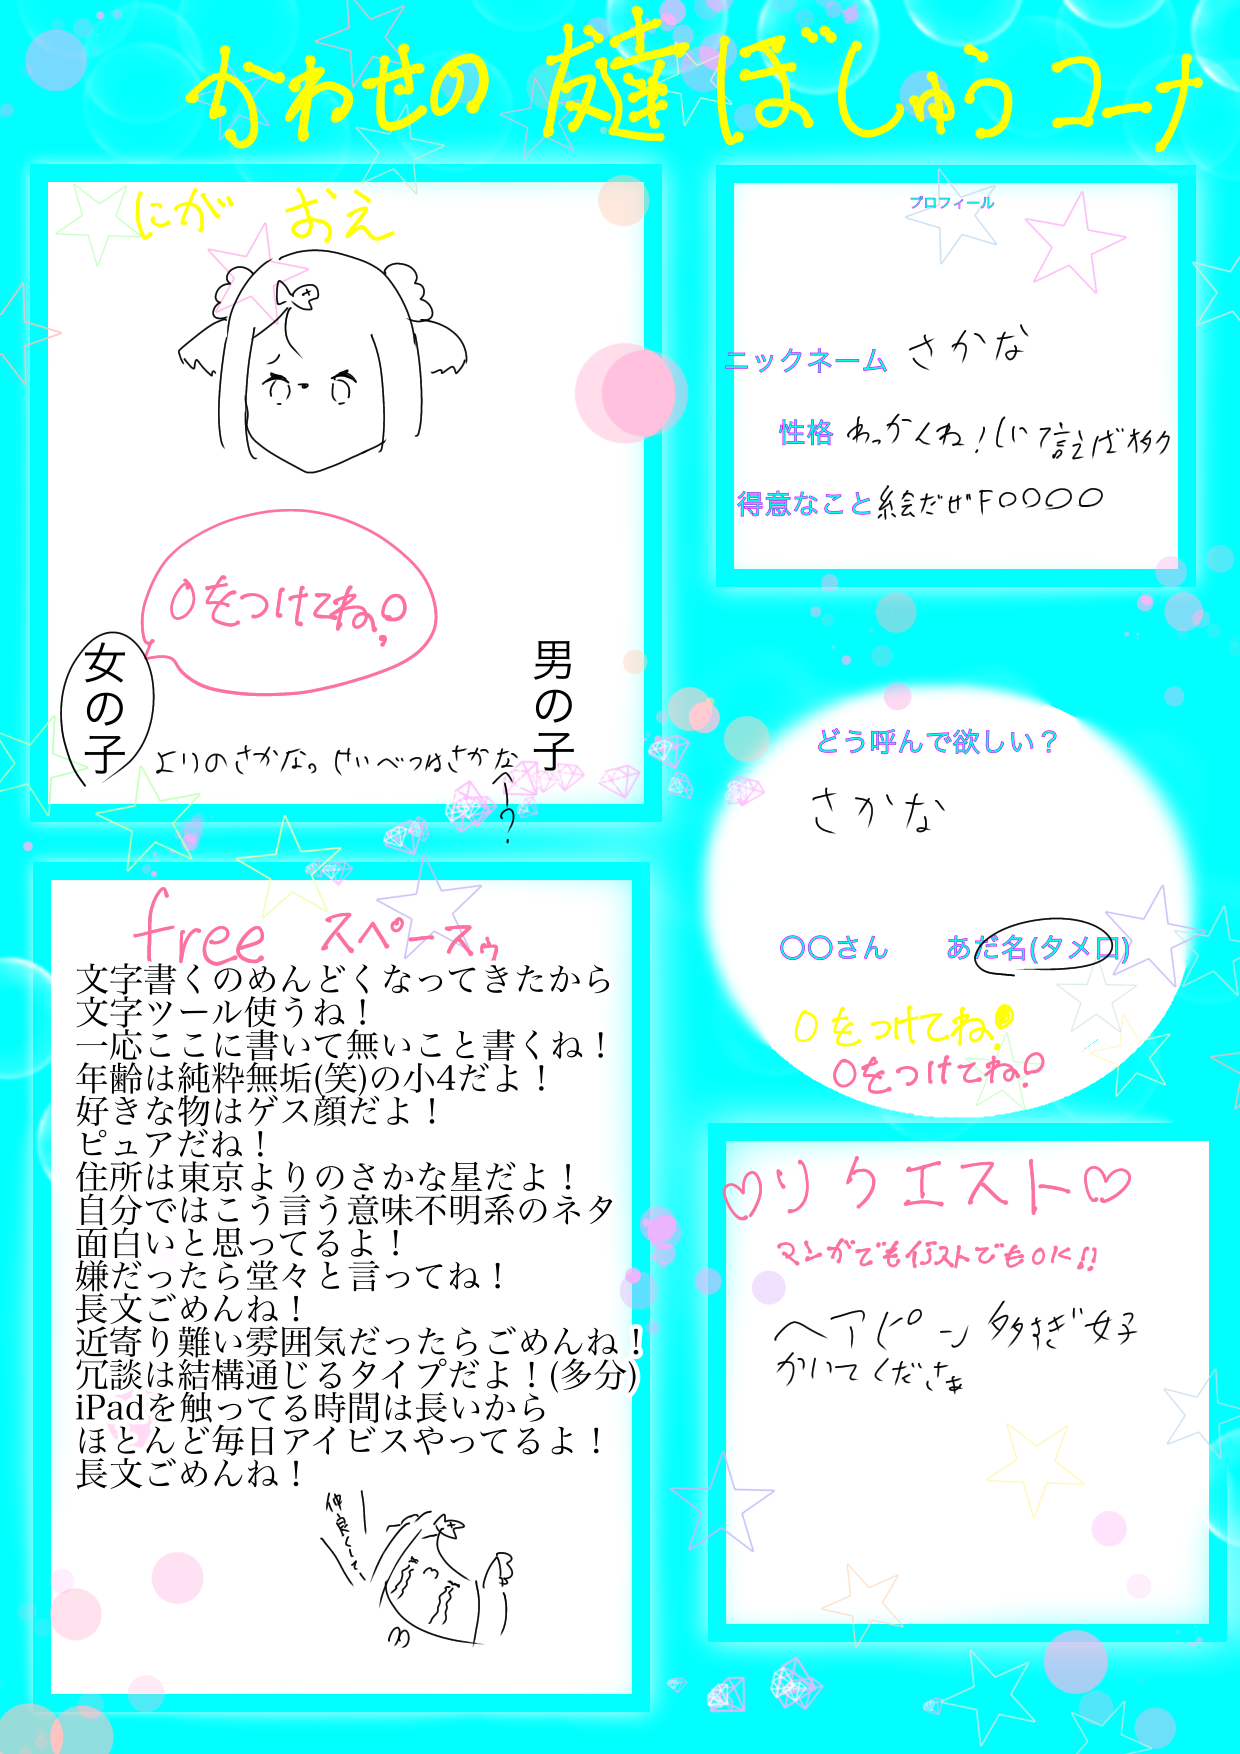 かわせの 友達 ぼしゅう コーナ
にが おえ
〇をつけてね!
女の子
男の子
よりのさかな。せいべつはさかな
へー?
プロフィール
ニックネーム さかな
性格 わっかくね!しいて言えばオタク
得意なこと 絵だぜF〇〇〇〇
どう呼んで欲しい?
さかな
〇〇さん あだ名(タメ口)
〇をつけてね!
〇をつけてね!
free スペースゥ
文字書くのめんどくなってきたから
文字ツール使うね！
一応ここに書いて無いこと書くね！
年齢は純粋無垢(笑)の小4だよ！
好きな物はゲス顔だよ！
ピュアだね！
住所は東京よりのさかな星だよ！
自分ではこう言う意味不明系のネタ
面白いと思ってるよ！
嫌だったら堂々と言ってね！
長文ごめんね！
近寄り難い雰囲気だったらごめんね！
冗談は結構通じるタイプだよ！(多分)
iPadを触ってる時間は長いから
ほとんど毎日アイビスやってるよ！
長文ごめんね！
仲良くしてー
♡リクエスト♡
マンガでもイラストでもOK!!
ヘアピン多すぎ女子
かいてくださぁ